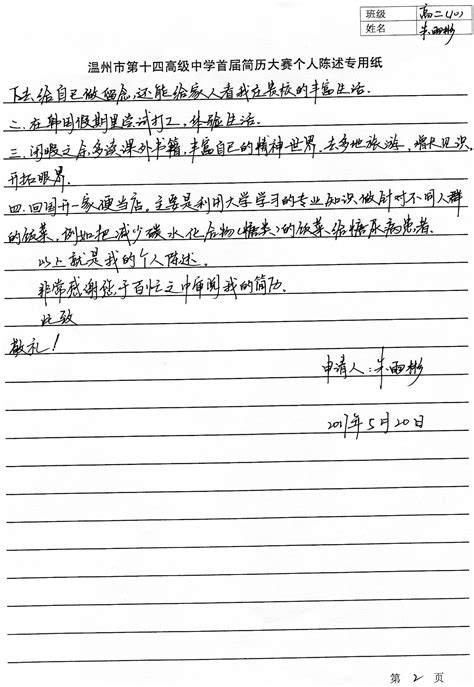 班级 高二(10)
姓名 朱雨彬
温州市第十四高级中学首届简历大赛个人陈述专用纸
下去给自己做留念,还能给家人看我在贵校的丰富生活.
二.在韩国假期里尝试打工,体验生活.
三.闲暇之余多读课外书籍,丰富自己的精神世界.去多地旅游,增长见识,
开拓眼界.
四.回国开一家便当店.主要是利用大学学习的专业知识做针对不同人群
的饭菜,例如把减少碳水化合物(糖类)的饭菜给糖尿病患者.
以上就是我的个人陈述.
非常感谢您于百忙之中审阅我的简历.
此致
敬礼!
申请人:朱雨彬
2017年5月20日
第 2 页